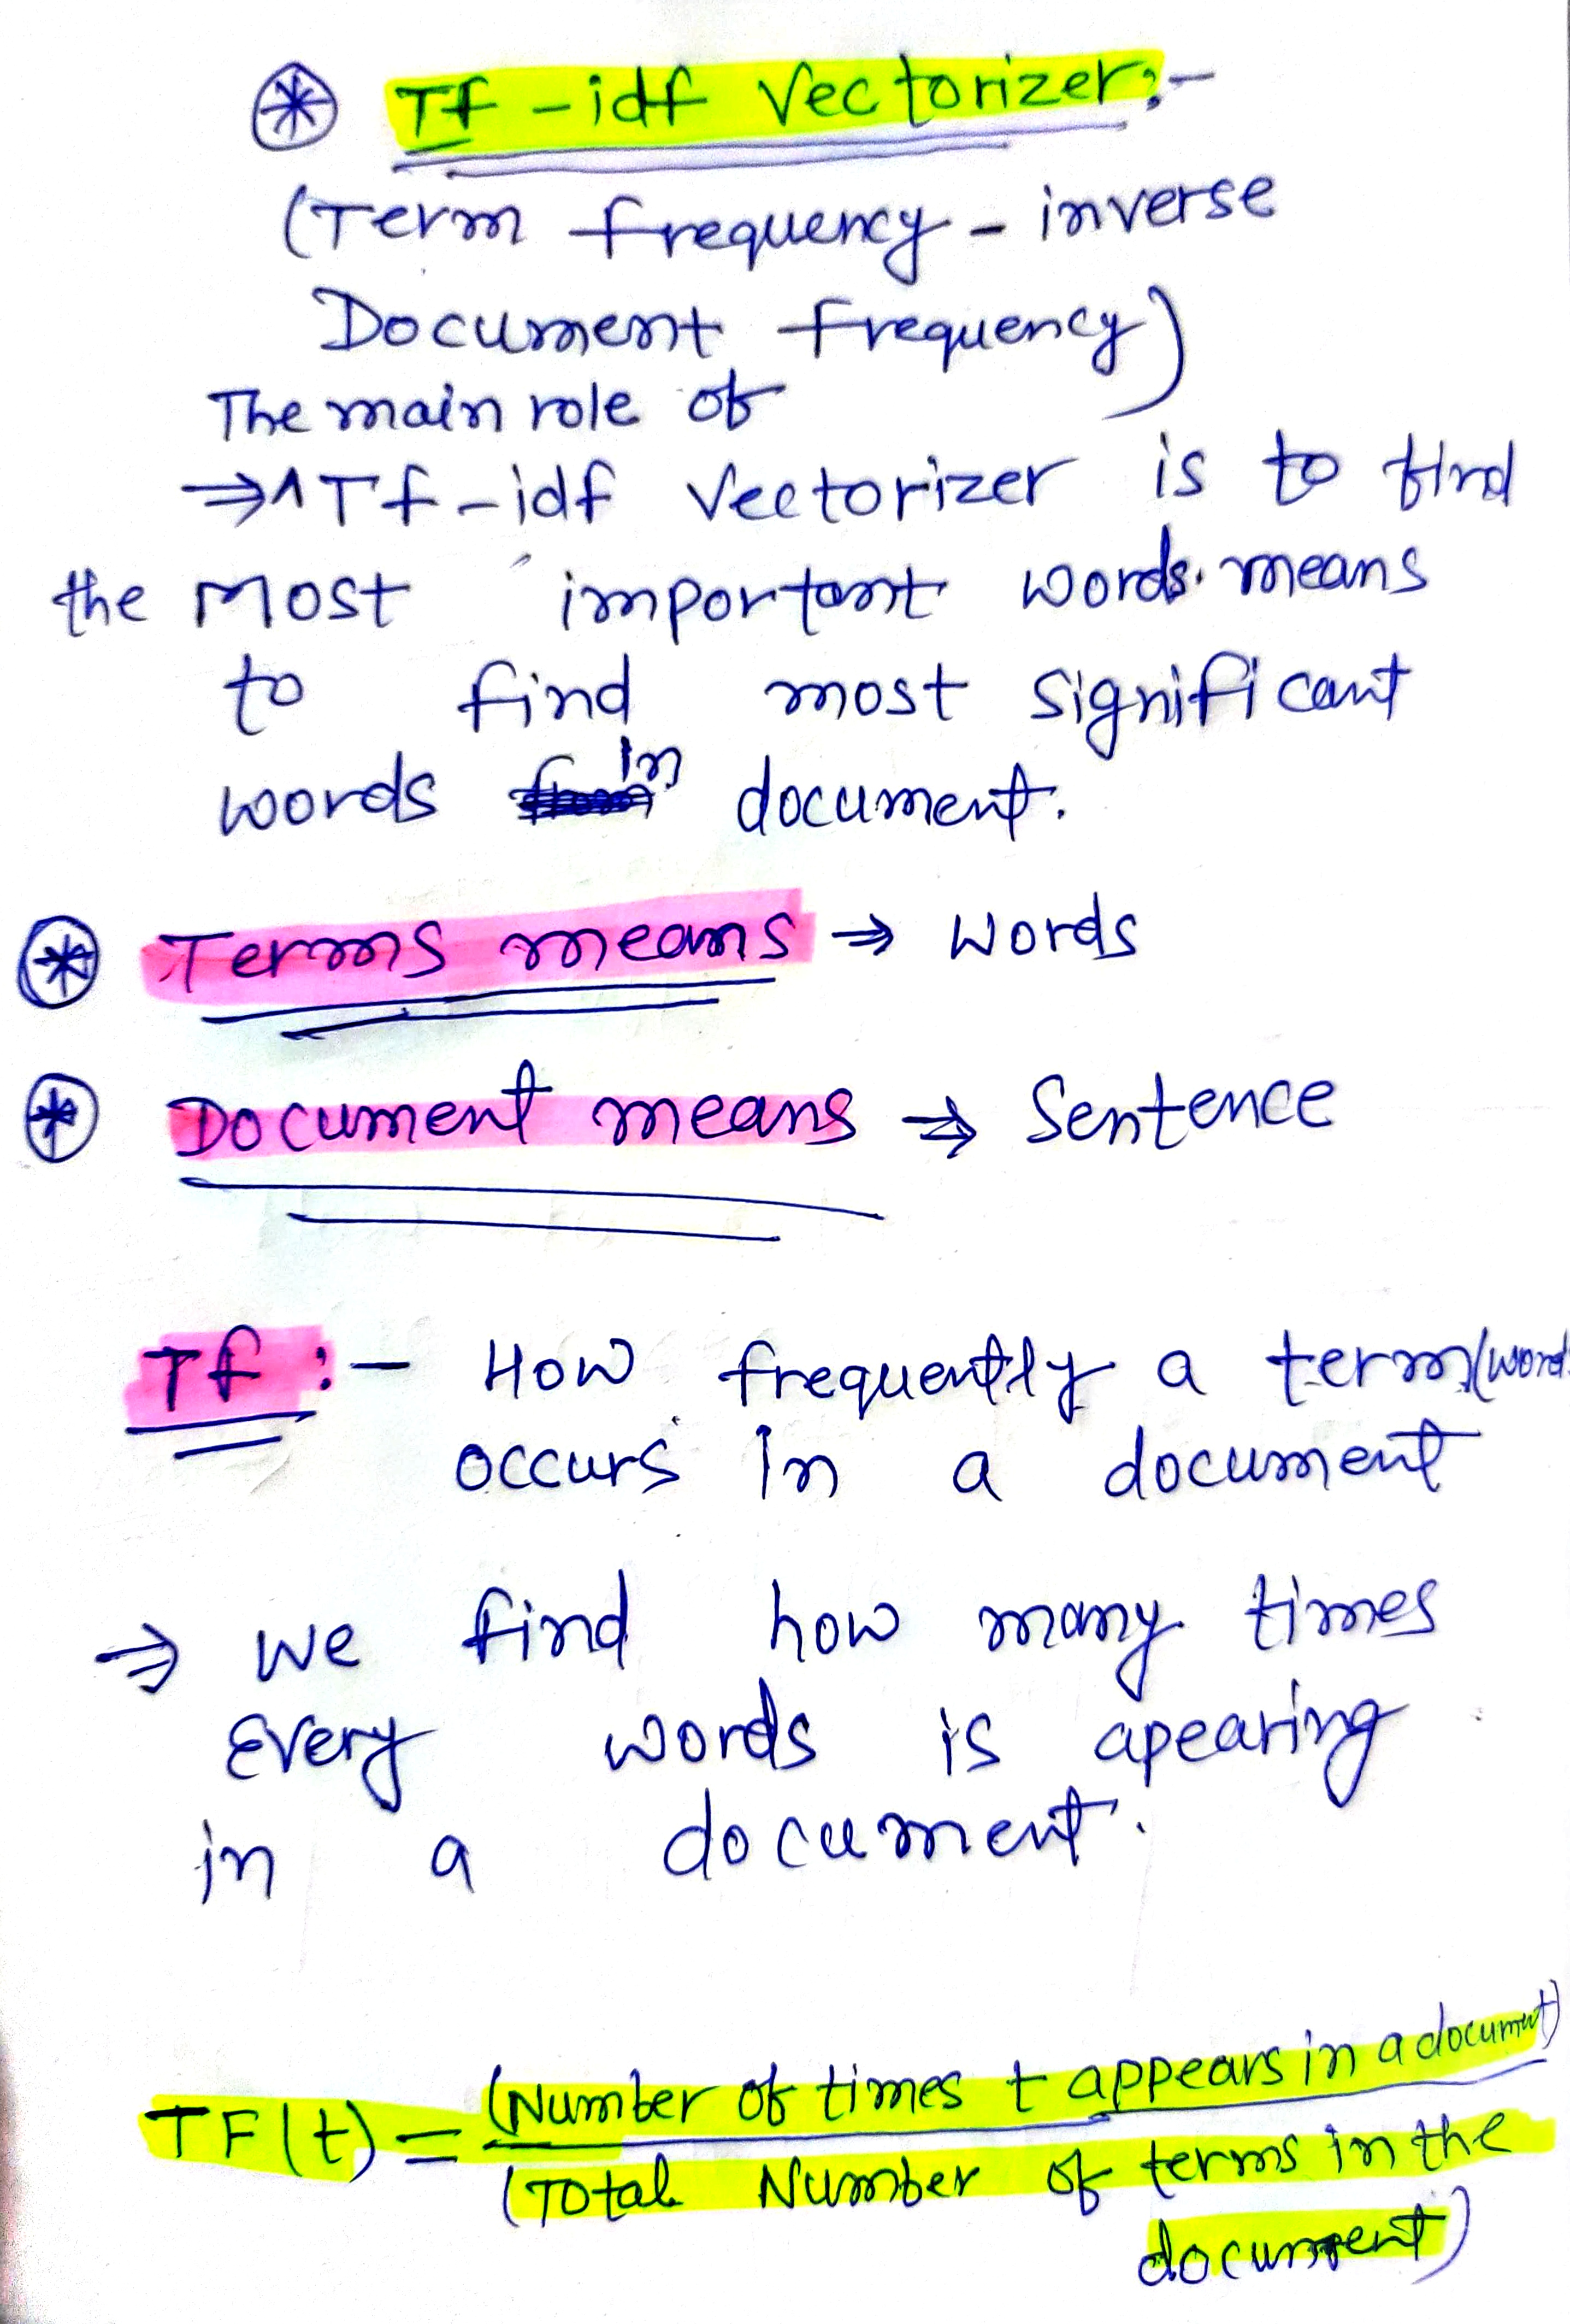 Tf-idf Vectorizer:-
(Term frequency - inverse
Document frequency)
The main role of
⇒^Tf-idf Vectorizer is to find
the most important words. means
to find most significant
words in document.
Terms means → words
Document means → Sentence
Tf:- How frequently a term(word
occurs in a document
⇒ we find how many times
Every words is apearing
in a document.
TF(t) = (Number of times t appears in a document)
(Total Number of terms in the
document)